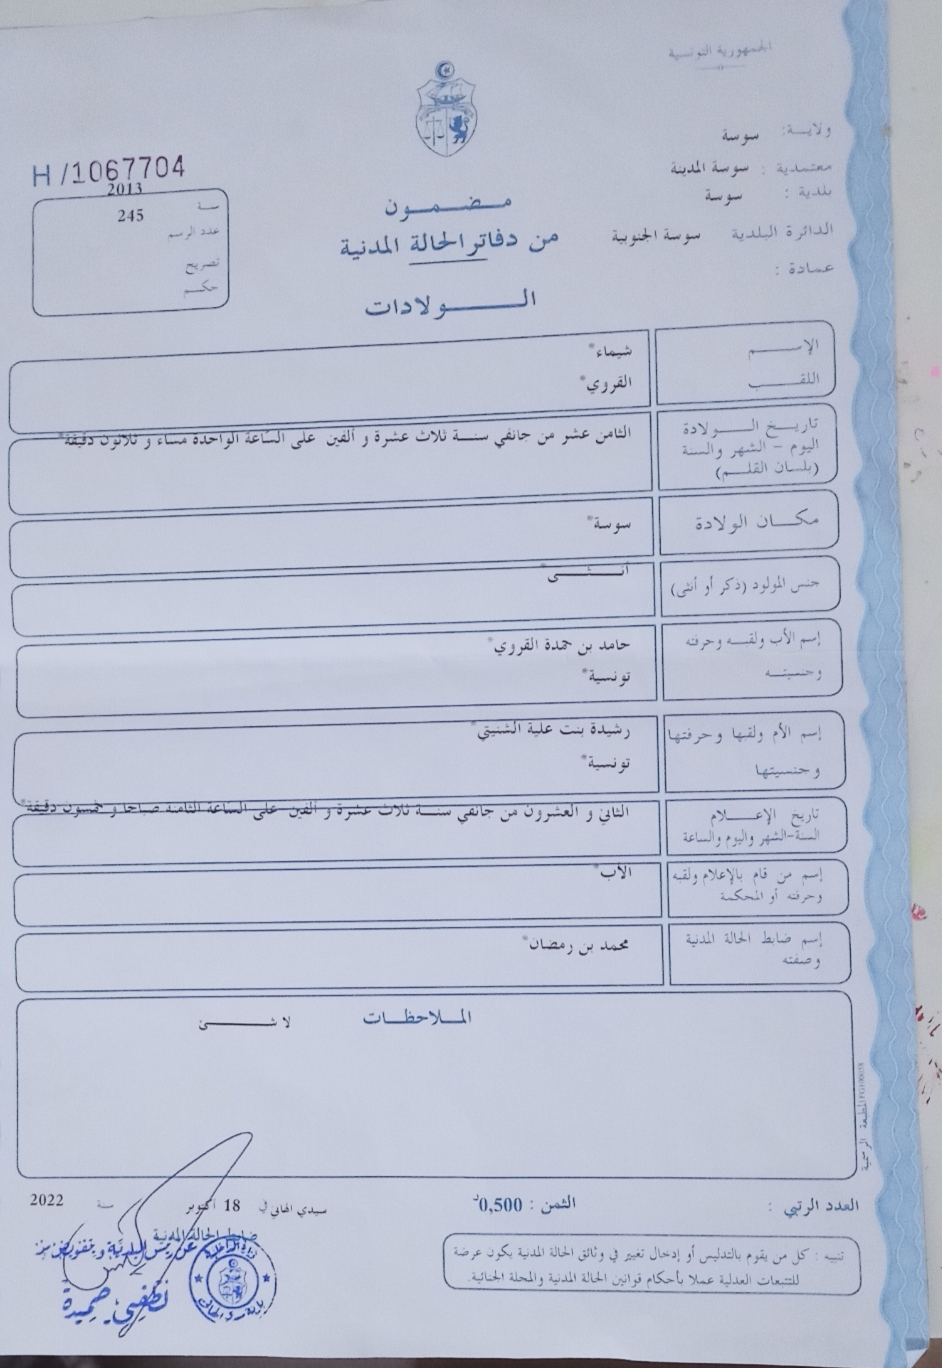 الجمهورية التونسية
ولايـــة: سوسة
معتمدية : سوسة المدينة
بلدية : سوسة
الدائرة البلدية سوسة الجنوبية
عمادة :
H/1067704
سنة 2013
عدد الرسم 245
تصريح
حكم
مضمون
من دفاتر الحالة المدنية
الولادات
الإسم شيماء*
اللقب القروي*
تاريخ الولادة
اليوم - الشهر والسنة
(بلسان القلم)
الثامن عشر من جانفي سنة ثلاث عشرة و ألفين على السّاعة الواحدة مساء و ثلاثون دقيقة*
مكان الولادة سوسة*
جنس المولود (ذكر أو أنثى) أنثى*
إسم الأب ولقبه وحرفته حامد بن حمدة القروي*
وجنسيته تونسية*
إسم الأم ولقبها وحرفتها رشيدة بنت علية الشنيتي*
وجنسيتها تونسية*
تاريخ الإعلام
السنة-الشهر واليوم والساعة
الثاني و العشرون من جانفي سنة ثلاث عشرة و ألفين على الساعة الثامنة صباحا و خمسون دقيقة*
إسم من قام بالإعلام ولقبه الأب*
وحرفته أو المحكمة
إسم ضابط الحالة المدنية محمد بن رمضان*
وصفته
الملاحظات لا شئ
المطبعة الرسمية
العدد الرتبي :
الثمن : 0,500د
سيدي الهاني في 18 أكتوبر سنة 2022
ضابط الحالة المدنية
عن رئيس البلدية و بتفويض منه
لطفي حميدة
تنبيه : كل من يقوم بالتدليس أو إدخال تغيير في وثائق الحالة المدنية يكون عرضة
للتتبعات العدلية عملا بأحكام قوانين الحالة المدنية والمجلة الجنائية.